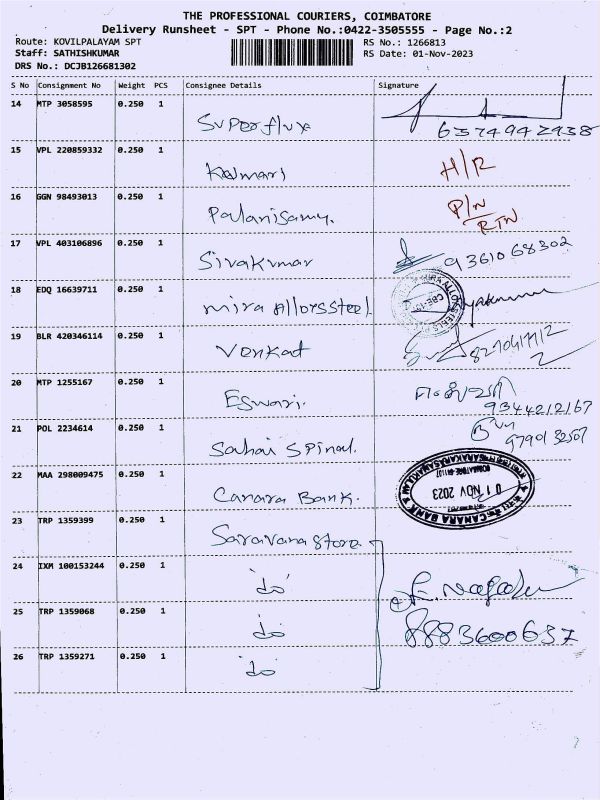 THE PROFESSIONAL COURIERS, COIMBATORE
Delivery Runsheet - SPT - Phone No.:0422-3505555 - Page No.:2
Route: KOVILPALAYAM SPT RS No.: 1266813
Staff: SATHISHKUMAR RS Date: 01-Nov-2023
DRS No.: DCJB126681302
S No Consignment No Weight PCS Consignee Details Signature
14 MTP 3058595 0.250 1
Superflux 6374942938
15 VPL 220859332 0.250 1
Kalmari H/R
16 GGN 98493013 0.250 1
Palanisamy. P/N
RTN
17 VPL 403106896 0.250 1
Sivakumar 9361068302
18 EDQ 16639711 0.250 1
mira Alloys Steel
19 BLR 420346114 0.250 1
Venkat
20 MTP 1255167 0.250 1
Eswari. 9344212167
21 POL 2234614 0.250 1
Sahai Spinal.
22 MAA 298009475 0.250 1
Canara Bank. 01 NOV 2023
CANARA BANK
23 TRP 1359399 0.250 1
Saravana store
24 IXM 100153244 0.250 1
'do'
25 TRP 1359068 0.250 1
'do' 8883600637
26 TRP 1359271 0.250 1
'do'